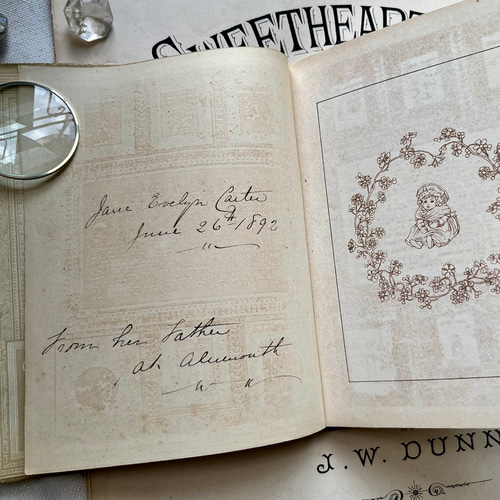 SWEETHEART
Jane Evelyn Carter
June 26th 1892
From her Father
at Alnmouth
J.W. DUNN